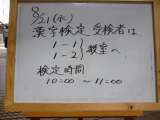 8/21(水)
漢字検定 受検者は
1-1
1-2 } 教室へ
検定時間
10:00 ~ 11:00